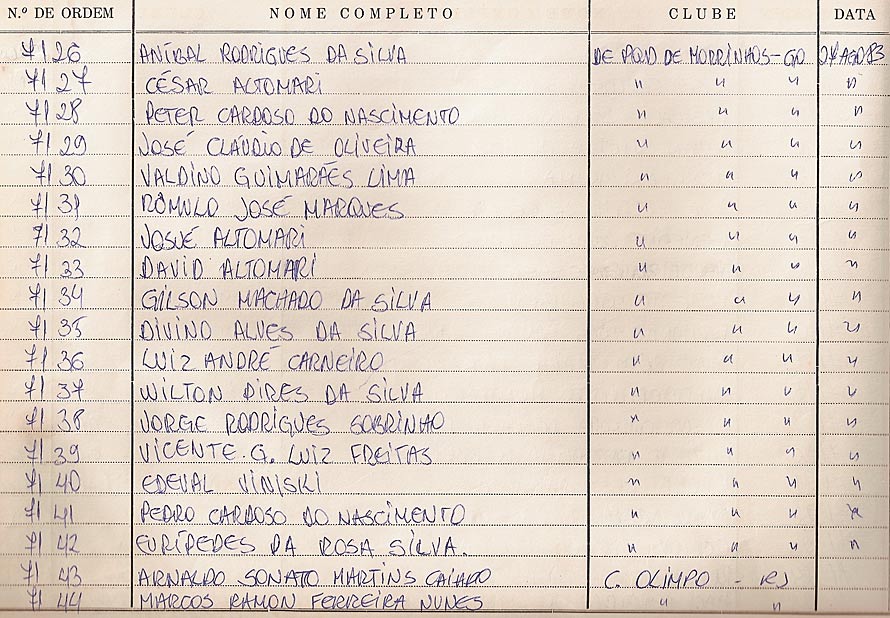 N.º DE ORDEM NOME COMPLETO CLUBE DATA
7126 ANÍBAL RODRIGUES DA SILVA DE PQD DE MORRINHOS-GO 27AGO83
7127 CÉSAR ALTOMARI " " " "
7128 PETER CARDOSO DO NASCIMENTO " " " "
7129 JOSÉ CLÁUDIO DE OLIVEIRA " " " "
7130 VALDINO GUIMARÃES LIMA " " " "
7131 RÔMULO JOSÉ MARQUES " " " "
7132 JOSUÉ ALTOMARI " " " "
7133 DAVID ALTOMARI " " " "
7134 GILSON MACHADO DA SILVA " " " "
7135 DIVINO ALVES DA SILVA " " " "
7136 LUIZ ANDRÉ CARNEIRO " " " "
7137 WILTON PIRES DA SILVA " " " "
7138 JORGE RODRIGUES SOBRINHO " " " "
7139 VICENTE G. LUIZ FREITAS " " " "
7140 EDEVAL VINISKI " " " "
7141 PEDRO CARDOSO DO NASCIMENTO " " " "
7142 EURÍPEDES DA ROSA SILVA. " " " "
7143 ARNALDO SONATO MARTINS CAIADO C. OLIMPO - RJ
7144 MARCOS RAMON FERREIRA NUNES " "